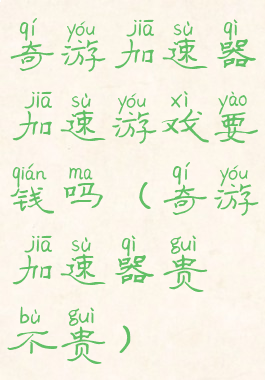 qí yóu jiā sù qì
奇游 加速器
jiā sù yóu xì yào
加速游戏要
qián ma qí yóu
钱吗（奇游
jiā sù qì guì
加速器贵
bù guì
不贵）